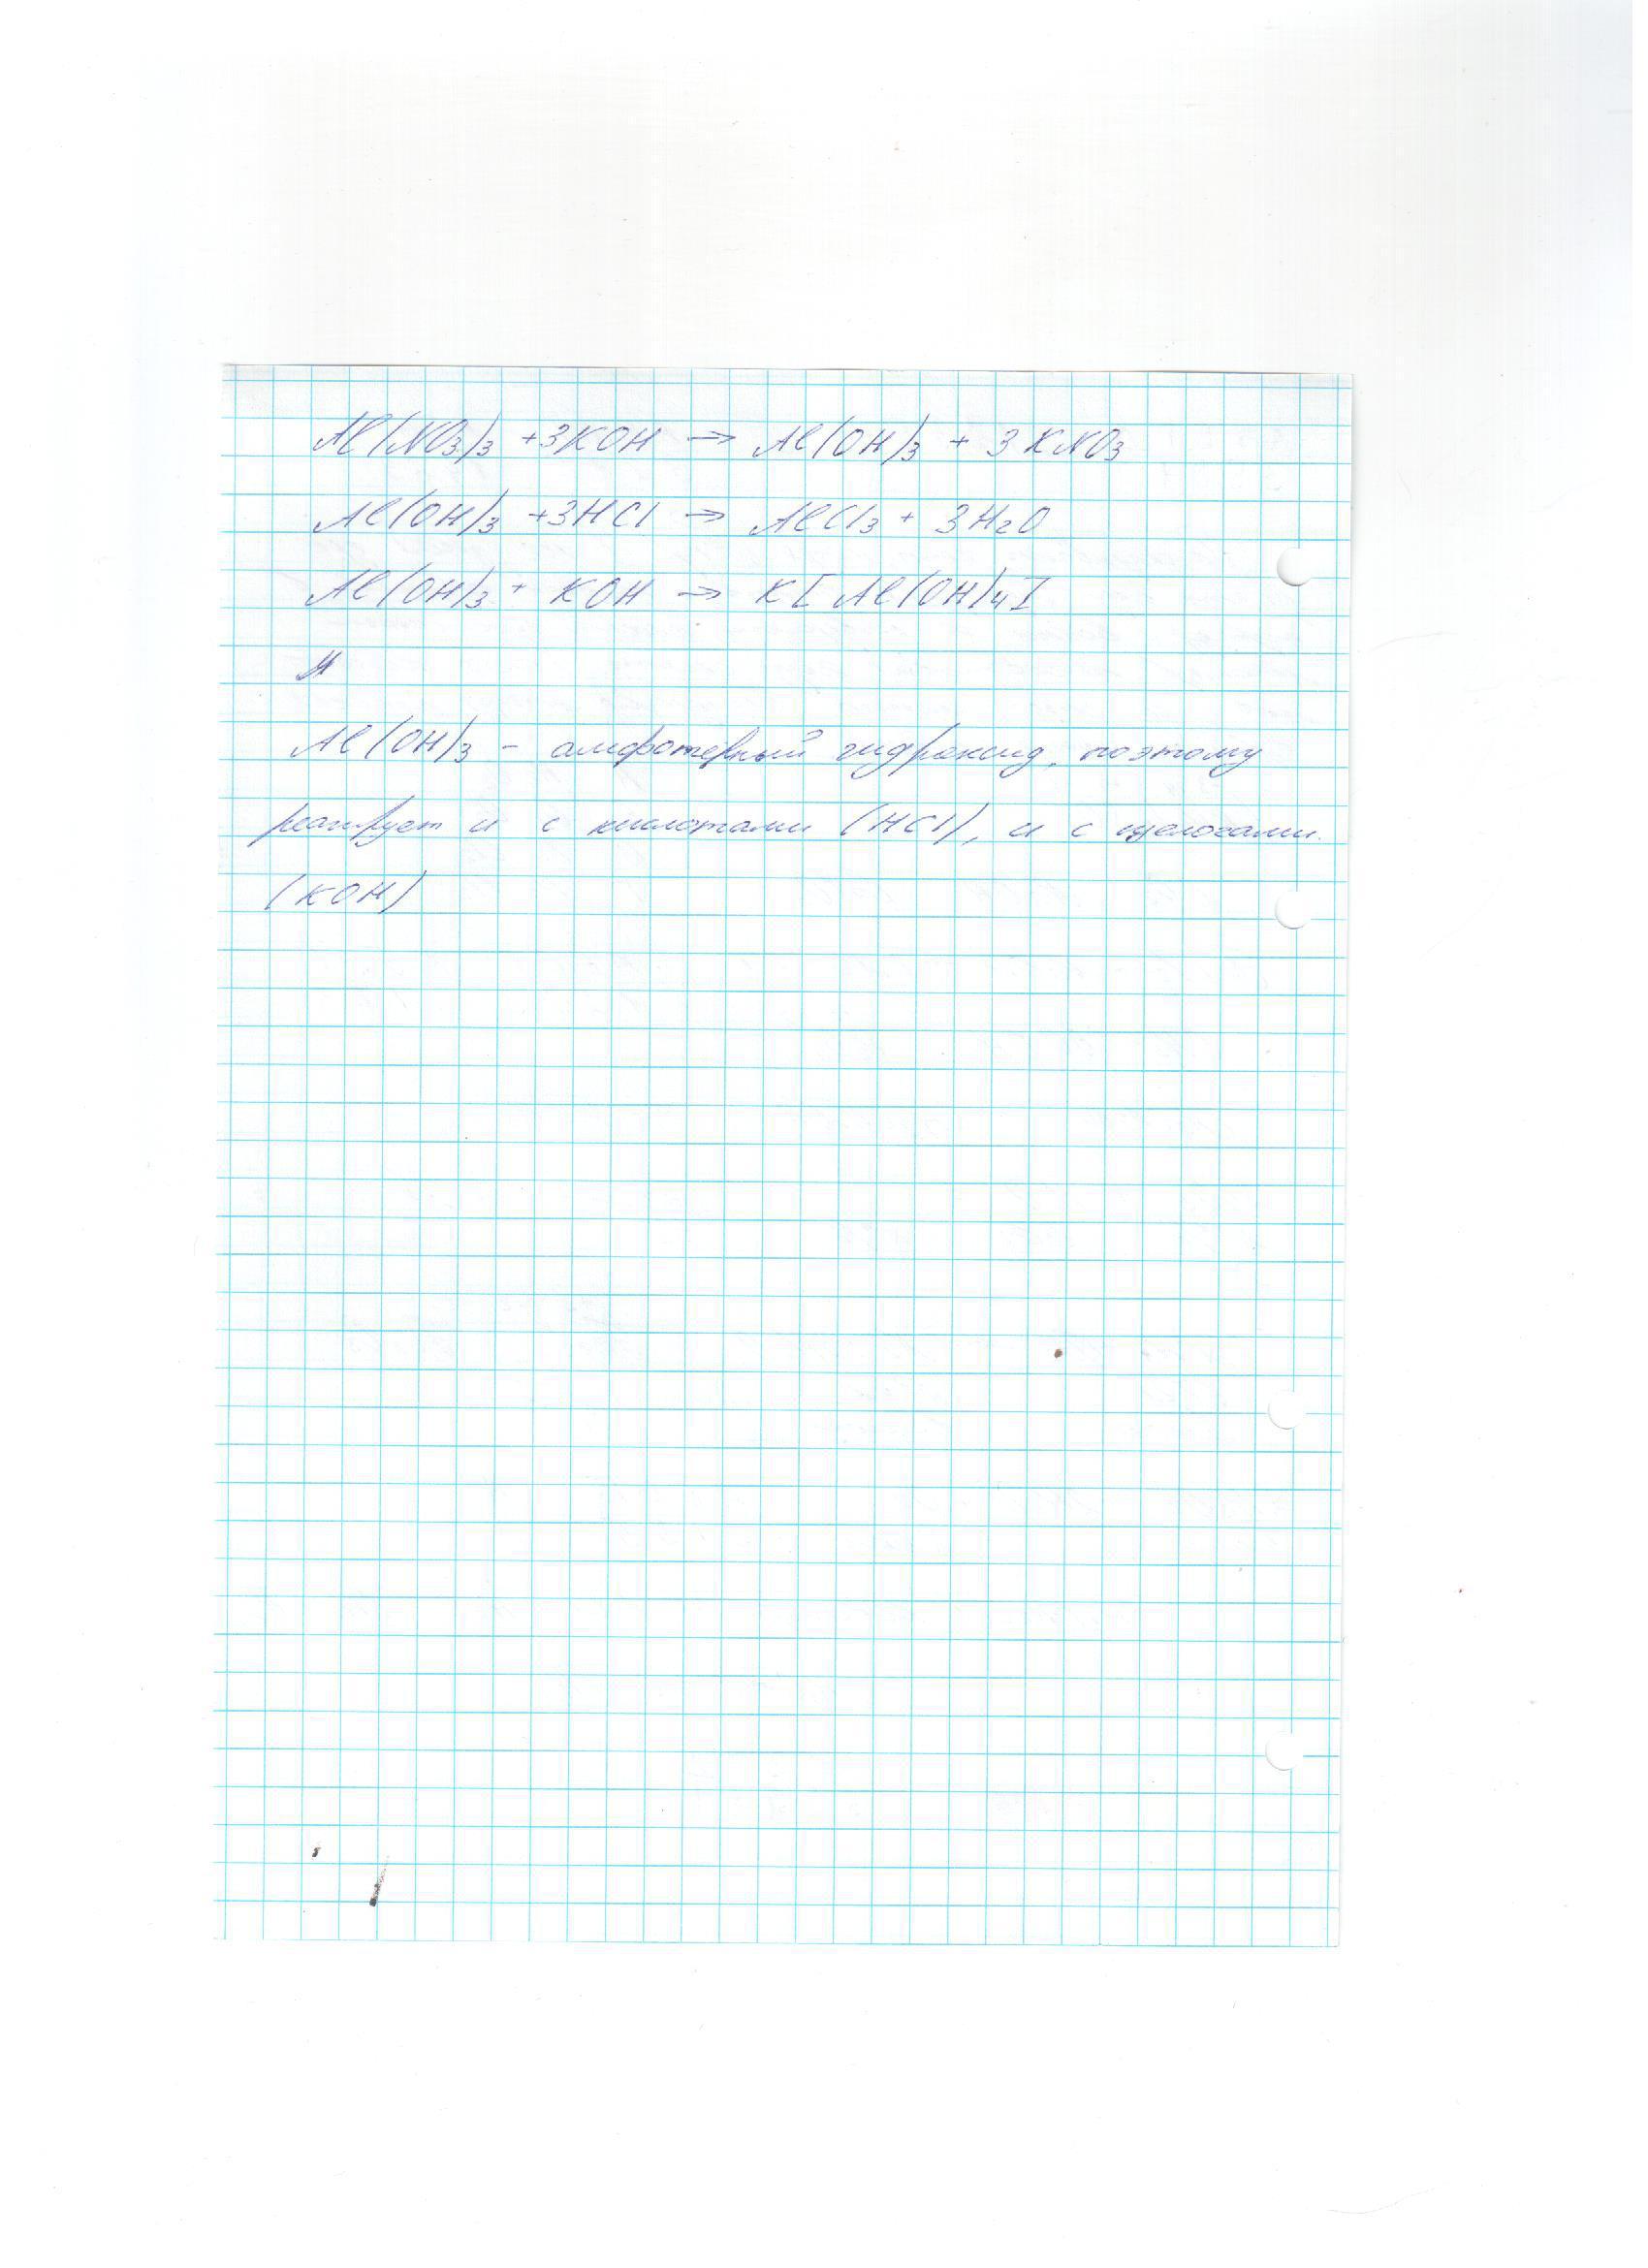 Al(NO3)3 +3KOH → Al(OH)3 + 3KNO3
Al(OH)3 +3HCl → AlCl3 + 3H2O
Al(OH)3 + KOH → K[Al(OH)4]
Al(OH)3 - амфотерный гидроксид, поэтому
реагирует и с кислотами (HCl), и с щелочами.
(KOH)